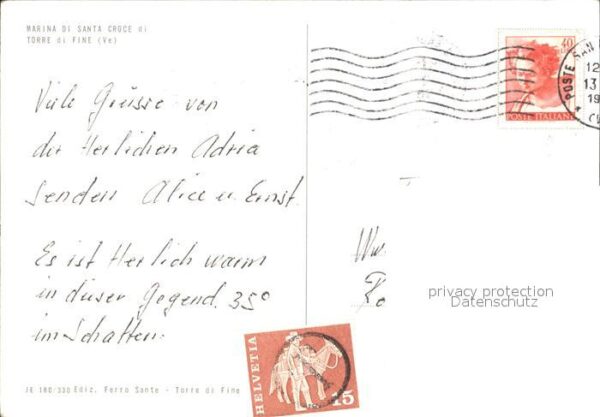 MARINA DI SANTA CROCE di
TORRE di FINE (Ve)
Viele Grüsse von
der Herlichen Adria
senden Alice u. Ernst.
Es ist Herlich warm
in dieser Gegend. 35°
im Schatten.
JE 180/330 Ediz. Ferro Sante - Torre di Fine
40
POSTE ITALIANE
POSTE SAN
12
13
19
privacy protection
Datenschutz
HELVETIA
15